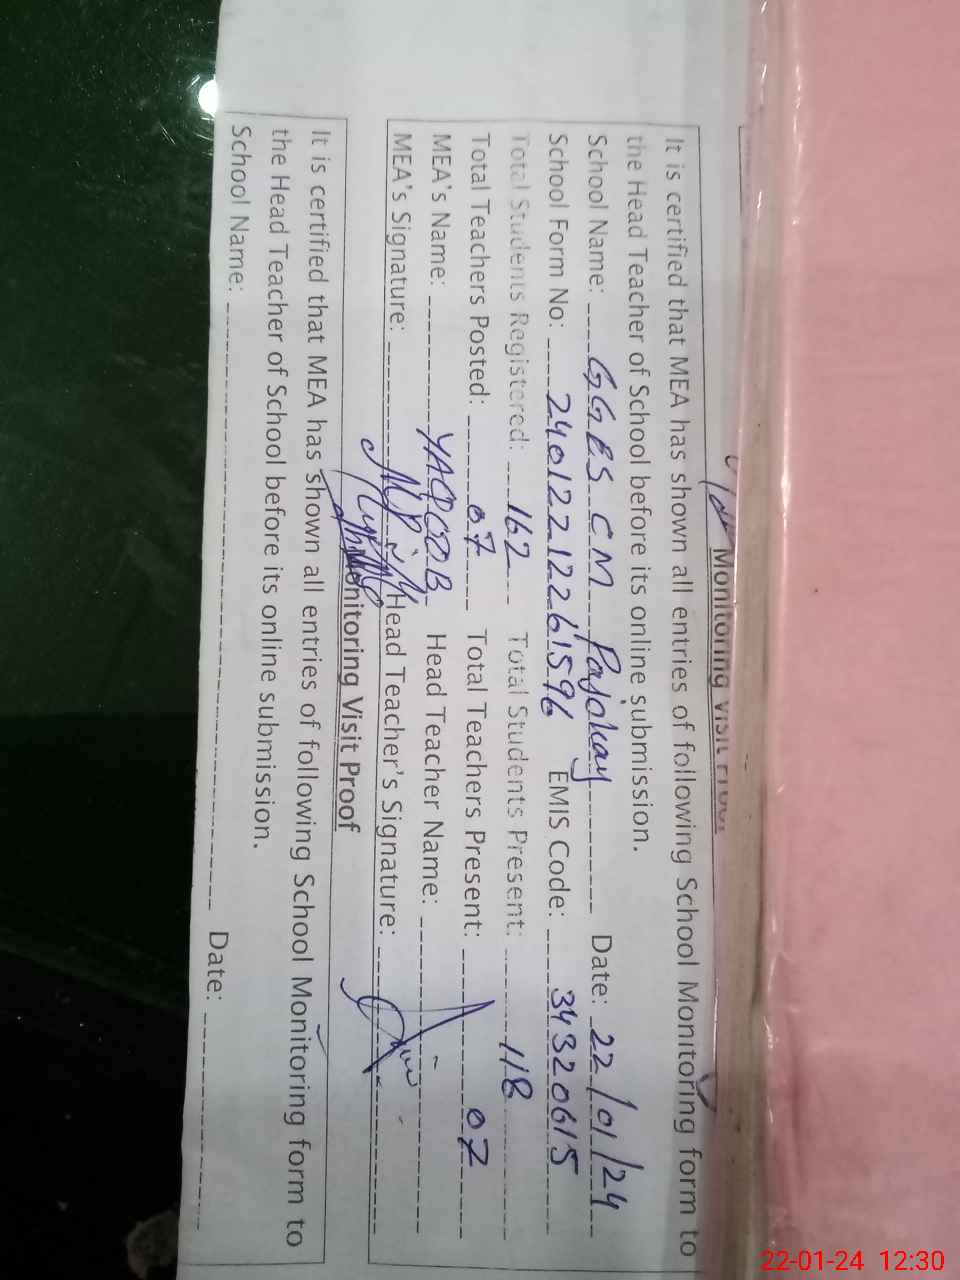 Monitoring Visit Proof
It is certified that MEA has shown all entries of following School Monitoring form to
the Head Teacher of School before its online submission.
School Name: GGES CM Date: 22/01/24
School Form No: 24012212261596 EMIS Code: 34320615
Total Students Registered: 162 Total Students Present: 118
Total Teachers Posted: 07 Total Teachers Present: 07
MEA's Name: YAQOOB Head Teacher Name:
MEA's Signature: Head Teacher's Signature:
Monitoring Visit Proof
It is certified that MEA has shown all entries of following School Monitoring form to
the Head Teacher of School before its online submission.
School Name: Date:
22-01-24 12:30